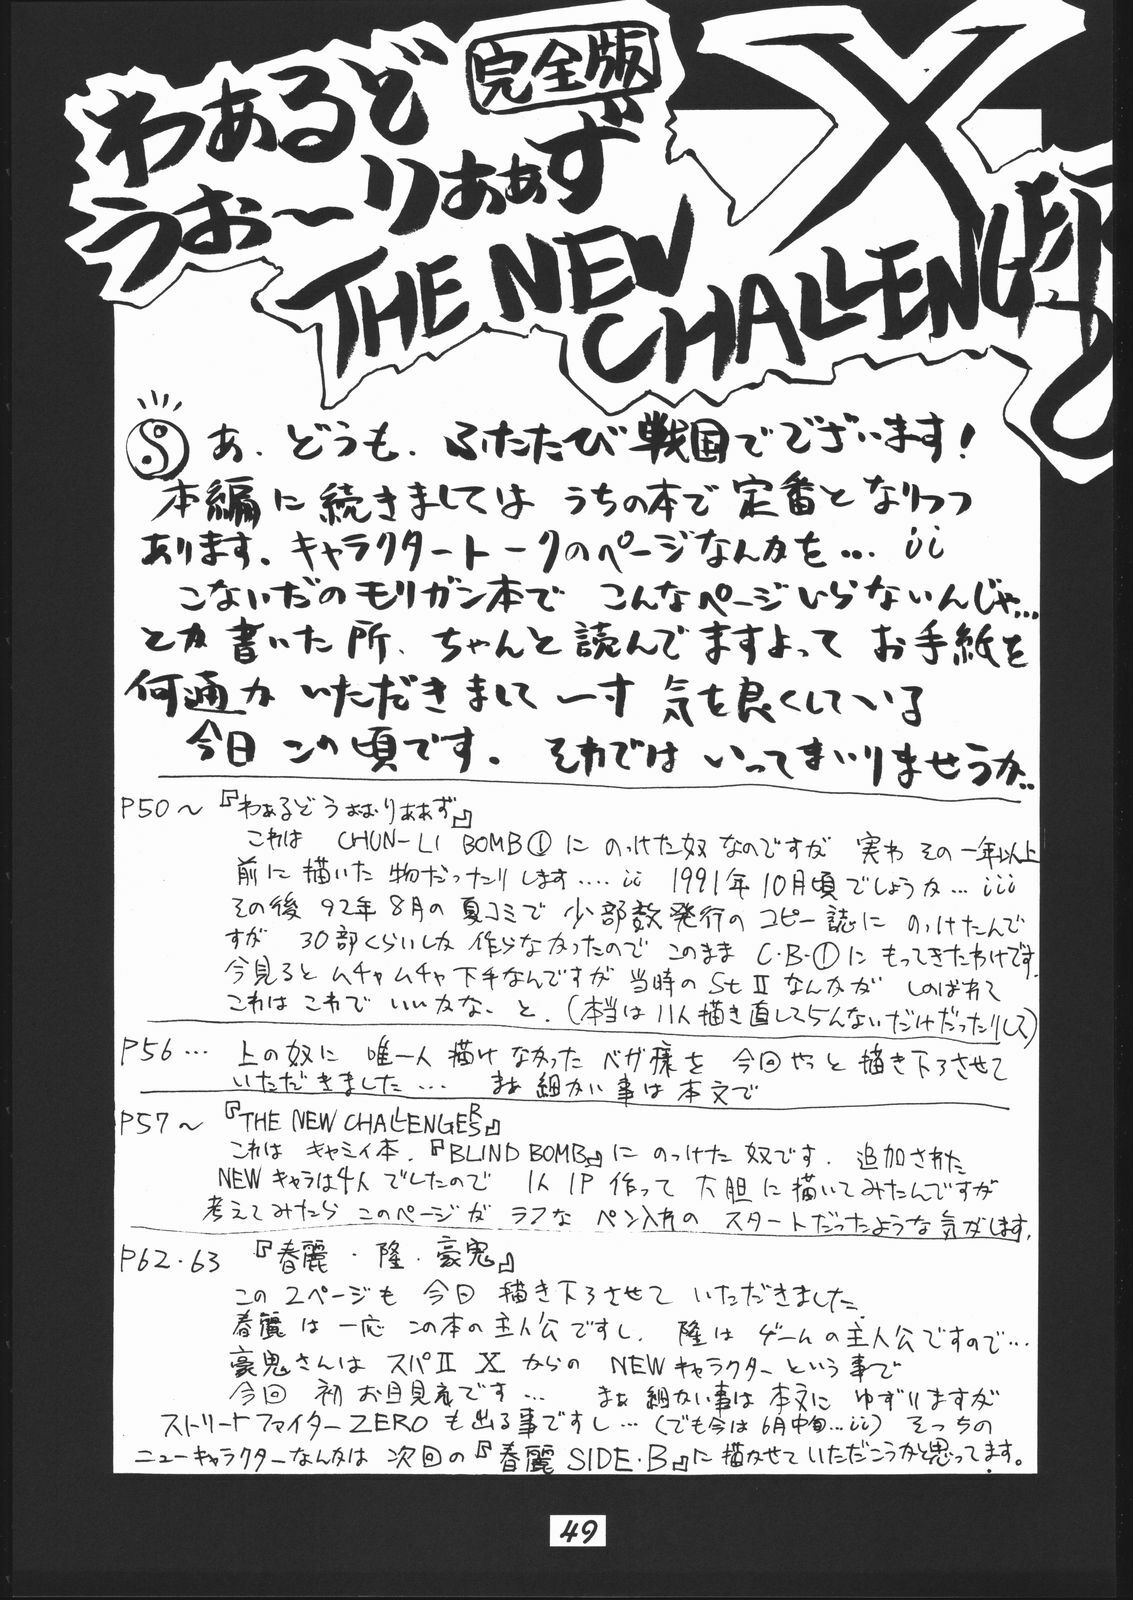 わぁるど 完全版
うぉ〜りあぁず X
THE NEW
CHALLENGER
あ、どうも、ふたたび戦国でございます!
本編に続きましては うちの本で定番となりつつ
あります、キャラクタートークのページなんかを… ii
こないだのモリガン本で こんなページいらないんじゃ…
とか書いた所、ちゃんと読んでますよって お手紙を
何通か いただきまして 一寸 気を良くしている
今日この頃です。それでは いってまいりませうか..
P50〜『わぁるどうぉおりあぁず』
これは CHUN-LI BOMB①に のっけた奴なのですが 実わ その一年以上
前に描いた物だったりします.... ii 1991年10月頃でしょうか... iii
その後 92年8月の夏コミで 少部数発行の コピー誌に のっけたんで
すが 30部くらいしか 作らなかったので このまま C・B・①に もってきたわけです.
今見ると ムチャムチャ下手なんですが 当時の St Ⅱ なんかが しのばれて
これは これで いいかな、と. (本当は 11人 描き直してらんないだけだったりしス)
P56… 上の奴に 唯一人 描けなかった ベガ様を 今回やっと 描き下ろさせて
いただきました… まあ 細かい事は 本文で
P57〜『THE NEW CHALLENGERS』
これは キャミィ本.『BLIND BOMB』に のっけた 奴です. 追加された
NEWキャラは4人 でしたので 1人 1P 作って 大胆に 描いてみたんですが
考えてみたら このページが ラフな ペン入れの スタートだったような気がします.
P62・63 『春麗・隆・豪鬼』
この2ページも 今日 描き下ろさせて いただきました.
春麗は 一応 この本の主人公ですし. 隆は ゲームの主人公ですので…
豪鬼さんは スパⅡ X からの NEWキャラクター という事で
今回 初 お目見えです… まあ 細かい事は 本文に ゆずりますが
ストリートファイターZEROも 出る事ですし… (でも今は 6月中旬…ii) そっちの
ニューキャラクターなんかは 次回の『春麗 SIDE・B』に 描かせて いただこうかと思ってます。
49